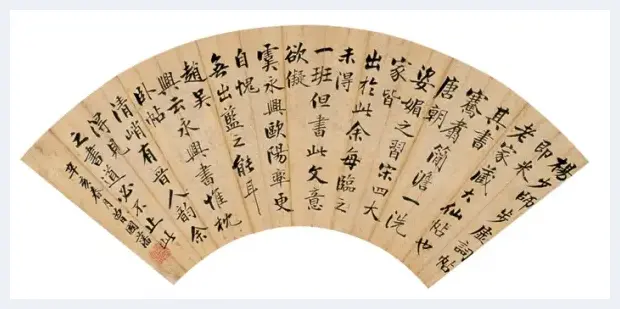 楊少師步虛詞帖
即米
老家藏大仙帖也
其書
騫翥簡澹一洗
唐朝
姿媚之習宋四大
家皆
出於此余每臨之
未得
一班但書此文意
欲儗
虞永興歐陽率更
自愧
無出藍之能耳
趙吳
興云永興書惟枕
臥帖
清峭有晉人韻余
得見道必不止此
之書
辛亥春月曾國藩